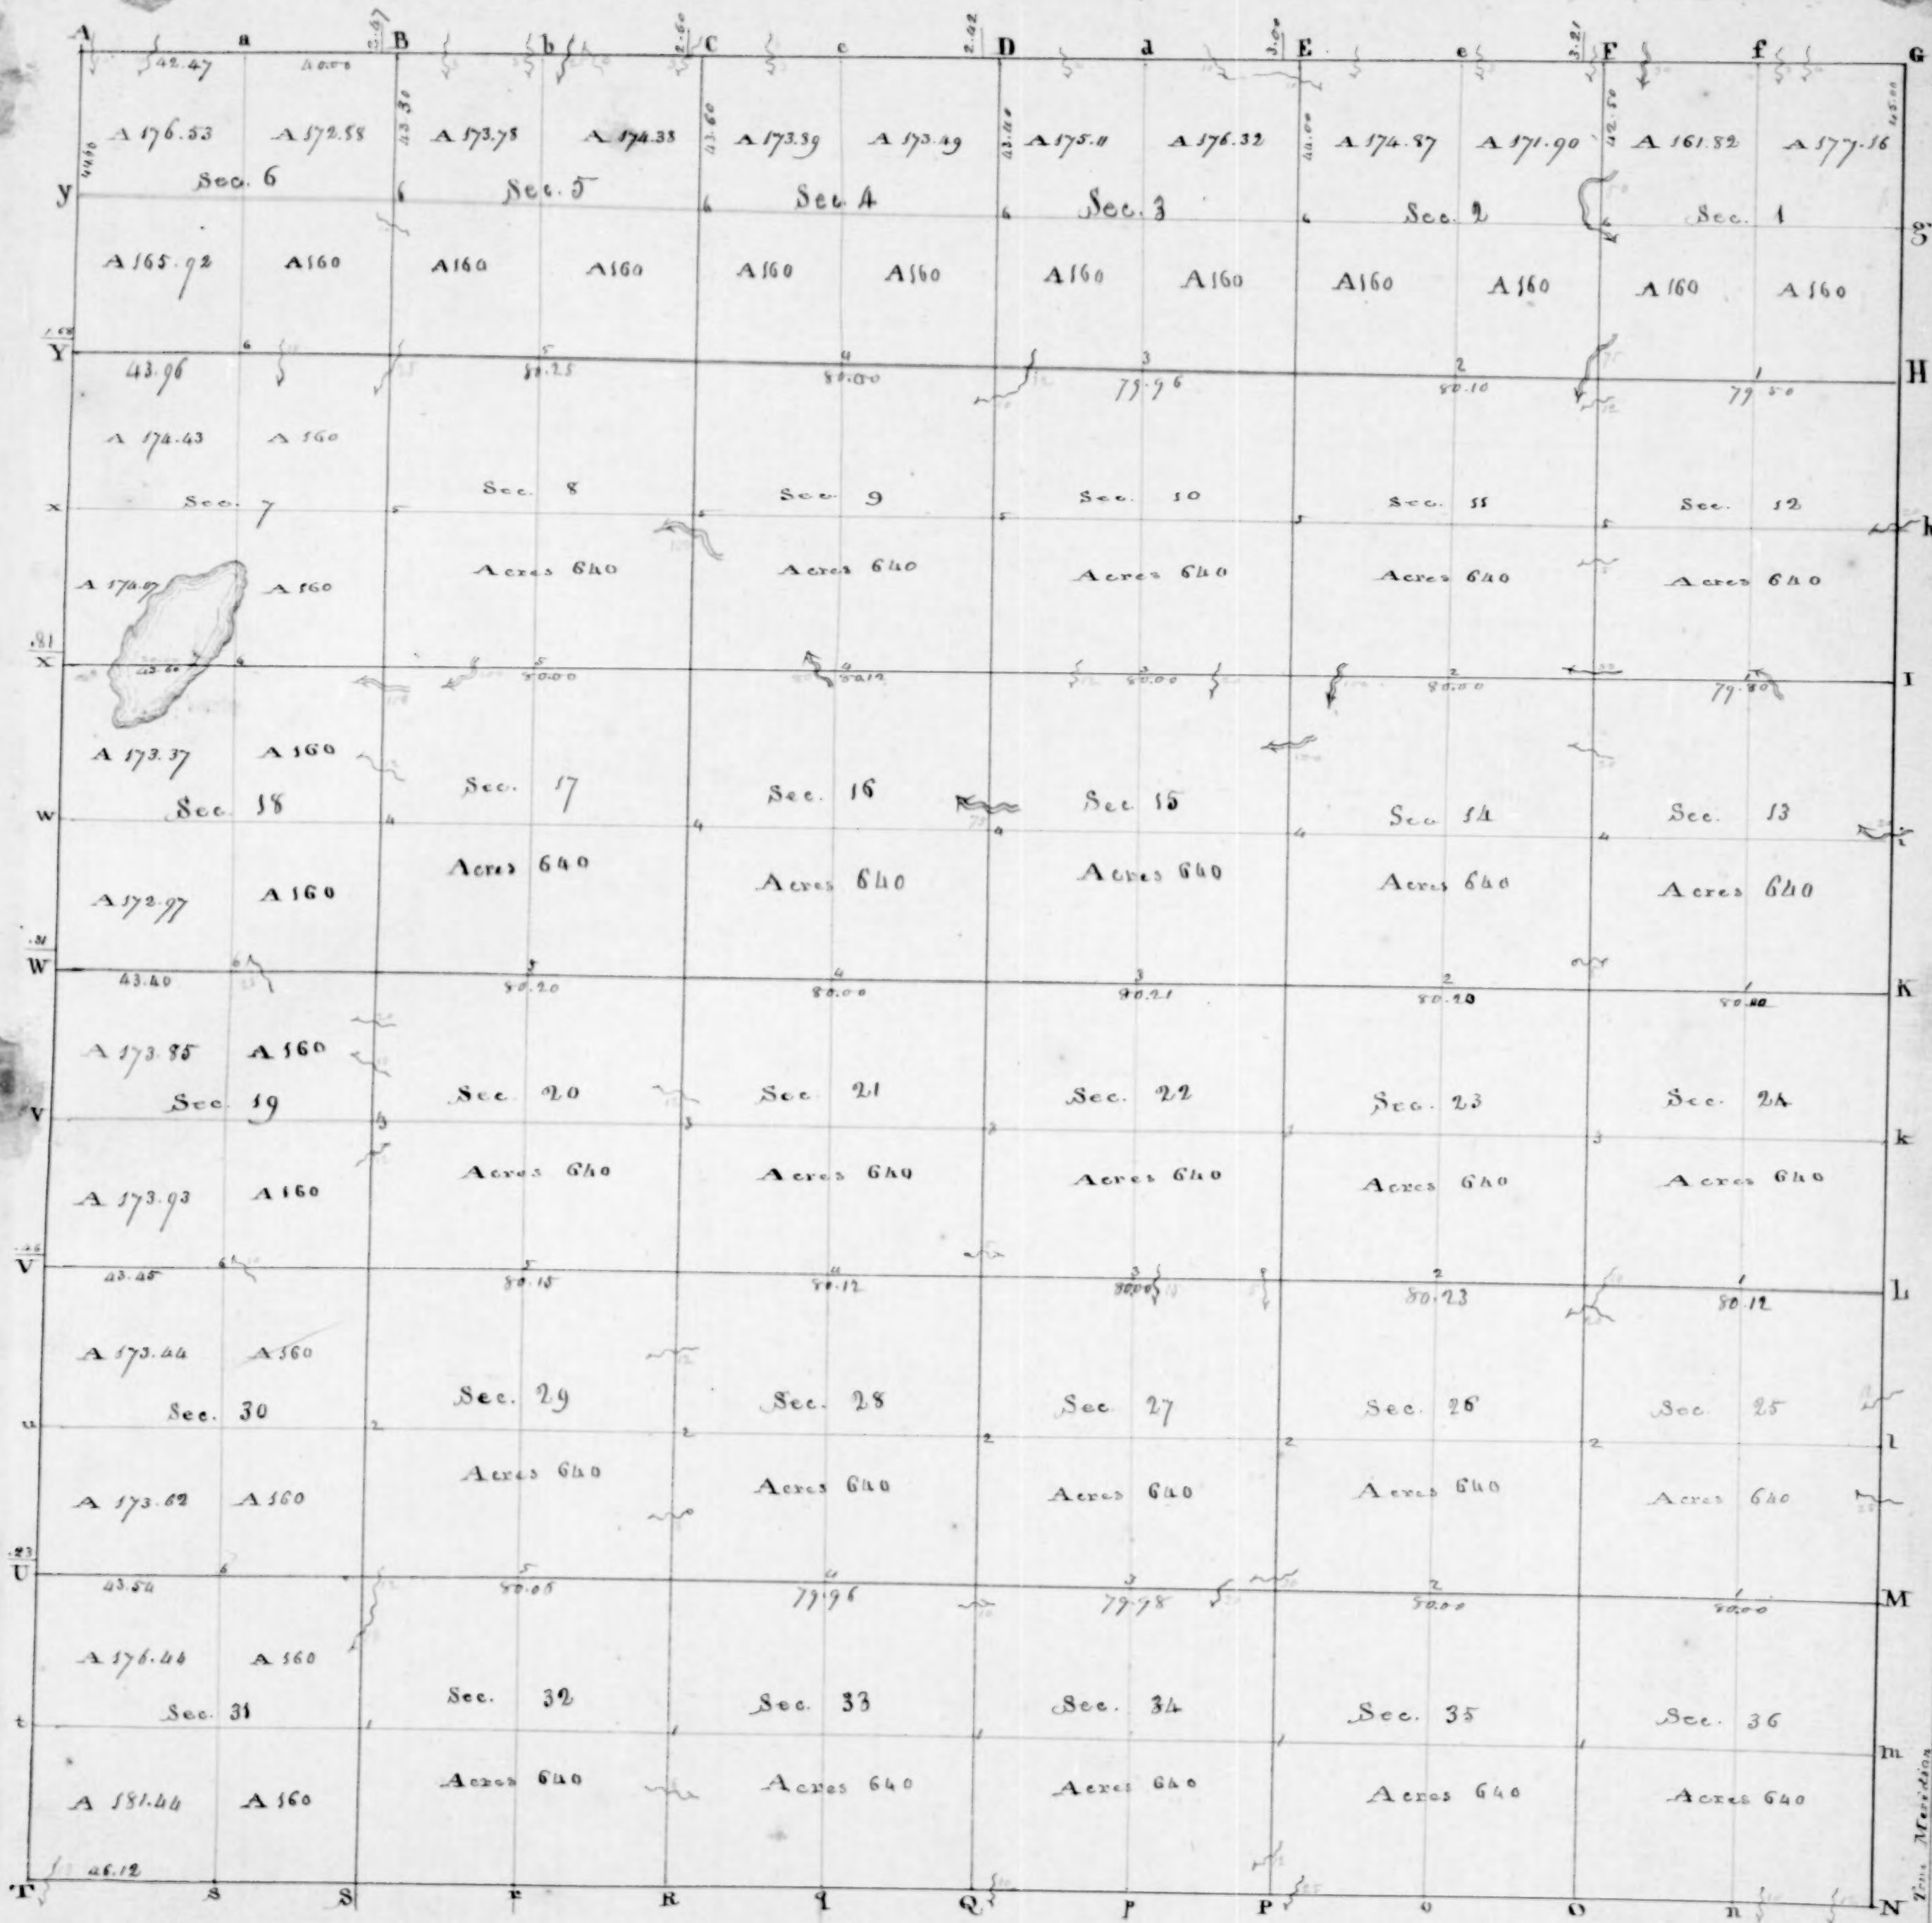 A a 3.47 B b 2.60 C c 2.42 D d 3.00 E e 3.21 F f G
42.47 40.00
43.30 43.60 43.40 44.00 42.50 45.00
A 176.53 A 172.58 A 173.78 A 174.38 A 173.89 A 173.49 A 175.11 A 176.32 A 174.87 A 171.90 A 161.82 A 177.16
Sec. 6 Sec. 5 Sec. 4 Sec. 3 Sec. 2 Sec. 1
y 6 6 6 6 6 g
A 165.92 A 160 A 160 A 160 A 160 A 160 A 160 A 160 A 160 A 160 A 160 A 160
Y 6 5 4 3 2 1 H
43.96 80.25 80.00 79.96 80.10 79.50
A 174.43 A 160
Sec. 7 Sec. 8 Sec. 9 Sec. 10 Sec. 11 Sec. 12
x 5 5 5 5 h
A 174.07 A 160 Acres 640 Acres 640 Acres 640 Acres 640 Acres 640
.81
X 6 5 4 3 2 1 I
43.60 80.00 80.12 80.00 80.00 79.80
A 173.37 A 160
Sec. 18 Sec. 17 Sec. 16 Sec 15 Sec 14 Sec. 13
w 4 4 4 4 4 i
A 172.97 A 160 Acres 640 Acres 640 Acres 640 Acres 640 Acres 640
.31
W 6 5 4 3 2 1 K
43.40 80.20 80.00 80.21 80.20
A 173.85 A 160
Sec. 19 Sec. 20 Sec. 21 Sec. 22 Sec. 23 Sec. 24
v 3 3 3 3 3 k
A 173.93 A 160 Acres 640 Acres 640 Acres 640 Acres 640 Acres 640
V 6 5 4 3 2 1 L
43.45 80.15 80.12 80.00 80.23 80.12
A 173.44 A 160
Sec. 30 Sec. 29 Sec. 28 Sec. 27 Sec. 26 Sec. 25
u 2 2 2 2 2 l
A 173.62 A 160 Acres 640 Acres 640 Acres 640 Acres 640 Acres 640
.23
U 6 5 4 3 2 1 M
43.54 80.06 79.96 79.98 80.00 80.00
A 176.44 A 160
Sec. 31 Sec. 32 Sec. 33 Sec. 34 Sec. 35 Sec. 36
t 1 1 1 1 1 m
A 181.44 A 160 Acres 640 Acres 640 Acres 640 Acres 640 Acres 640
46.12
T s S r R q Q p P o O n N
Meridian